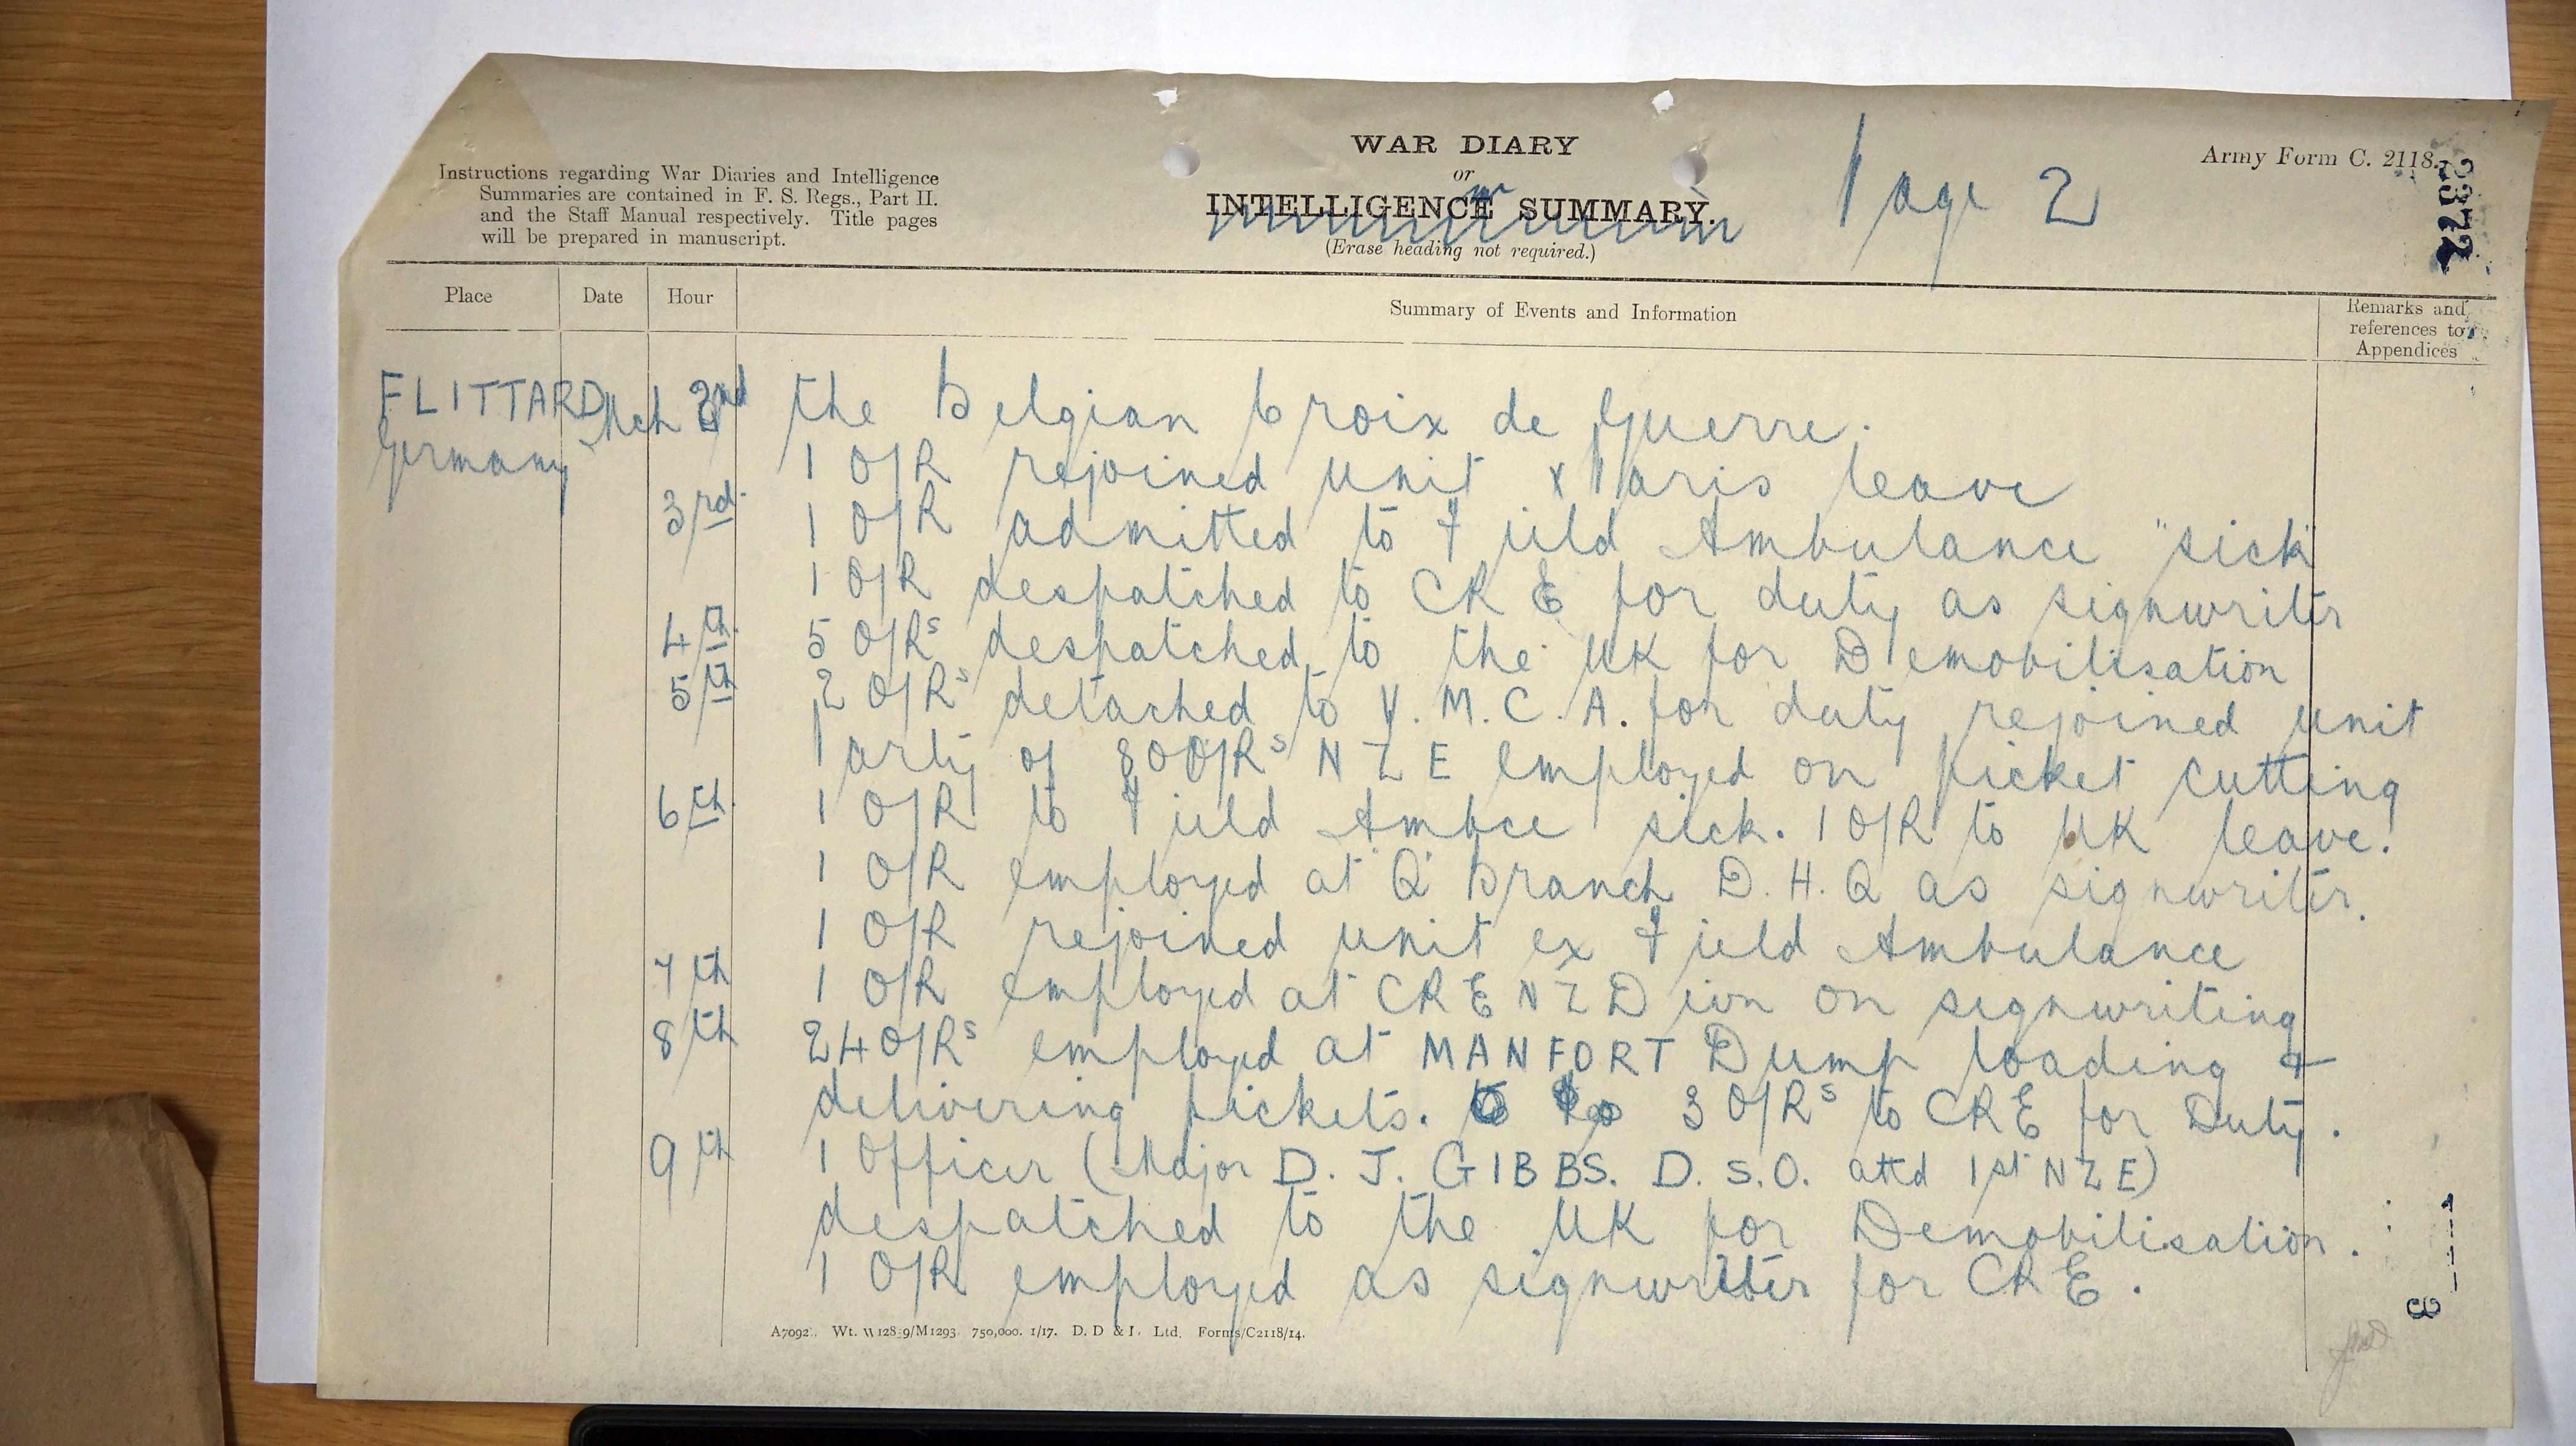 WAR DIARY
or
INTELLIGENCE SUMMARY.
(Erase heading not required.)
Page 2
Army Form C. 2118.
2372
Instructions regarding War Diaries and Intelligence
Summaries are contained in F. S. Regs., Part II.
and the Staff Manual respectively. Title pages
will be prepared in manuscript.
Place Date Hour Summary of Events and Information Remarks and references to Appendices
FLITTARD Mch 2nd the Belgian Croix de Guerre.
Germany 1 O/R rejoined unit x Paris leave
3rd. 1 O/R admitted to Field Ambulance "sick"
1 O/R despatched to CRE for duty as signwriter
4th. 5 O/Rs despatched to the UK for Demobilisation
5th 2 O/Rs detached to Y.M.C.A. for duty rejoined unit
Party of 80 O/Rs NZE employed on picket cutting
6th. 1 O/R to Field Ambce sick. 1 O/R to UK leave.
1 O/R employed at 'Q' Branch D.H.Q as signwriter.
1 O/R rejoined unit ex Field Ambulance
7th 1 O/R employed at CRE NZ Divn on signwriting
8th 24 O/Rs employed at MANFORT Dump loading +
delivering pickets. 3 O/Rs to CRE for Duty.
9th 1 Officer (Major D. J. GIBBS. D.S.O. attd 1st NZE)
despatched to the UK for Demobilisation.
1 O/R employed as signwriter for CRE.
3
750,000. 1/17. D. D & L. Ltd. Forms/C2118/14.